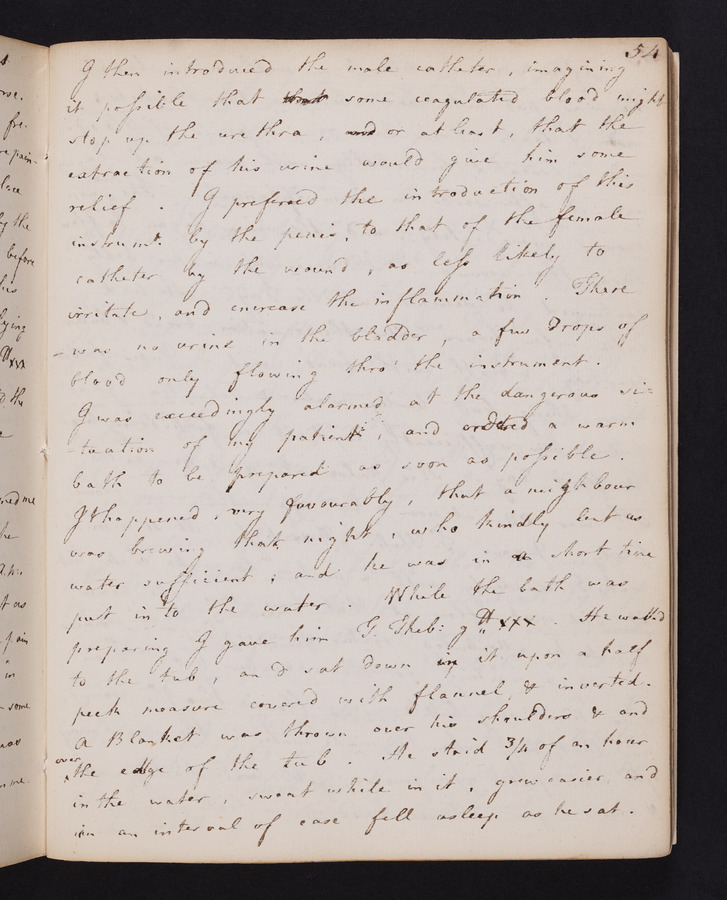 54
I then introduced the male catheter, imagining
it possible that that some coagulated blood might
stop up the urethra, and or at least, that the
extraction of his urine would give him some
relief. I prefered the introduction of this
instrumt. by the penis, to that of the female
catheter by the wound, as less likely to
irritate, and encrease the inflammation. There
was no urine in the bladder, a few Drops of
blood only flowing thro' the instrument.
I was exceedingly alarmed at the dangerous si=
-tuation of my patient, and ordered a warm
bath to be prepared as soon as possible.
It happened, very favourably, that a neighbour
was brewing that night, who kindly lent us
water sufficient; and he was in a short time
put into the water. While the bath was
preparing I gave him G. Theb: gtt xxx. He walked
to the tub, and sat down in it upon a half
peck measure covered with flannel, & inverted.
A Blanket was thrown over his shoulders & and
over
the edge of the tub. He staid 3/4 of an hour
in the water, sweat while in it, grew easier, and
in an interval of ease fell asleep as he sat.